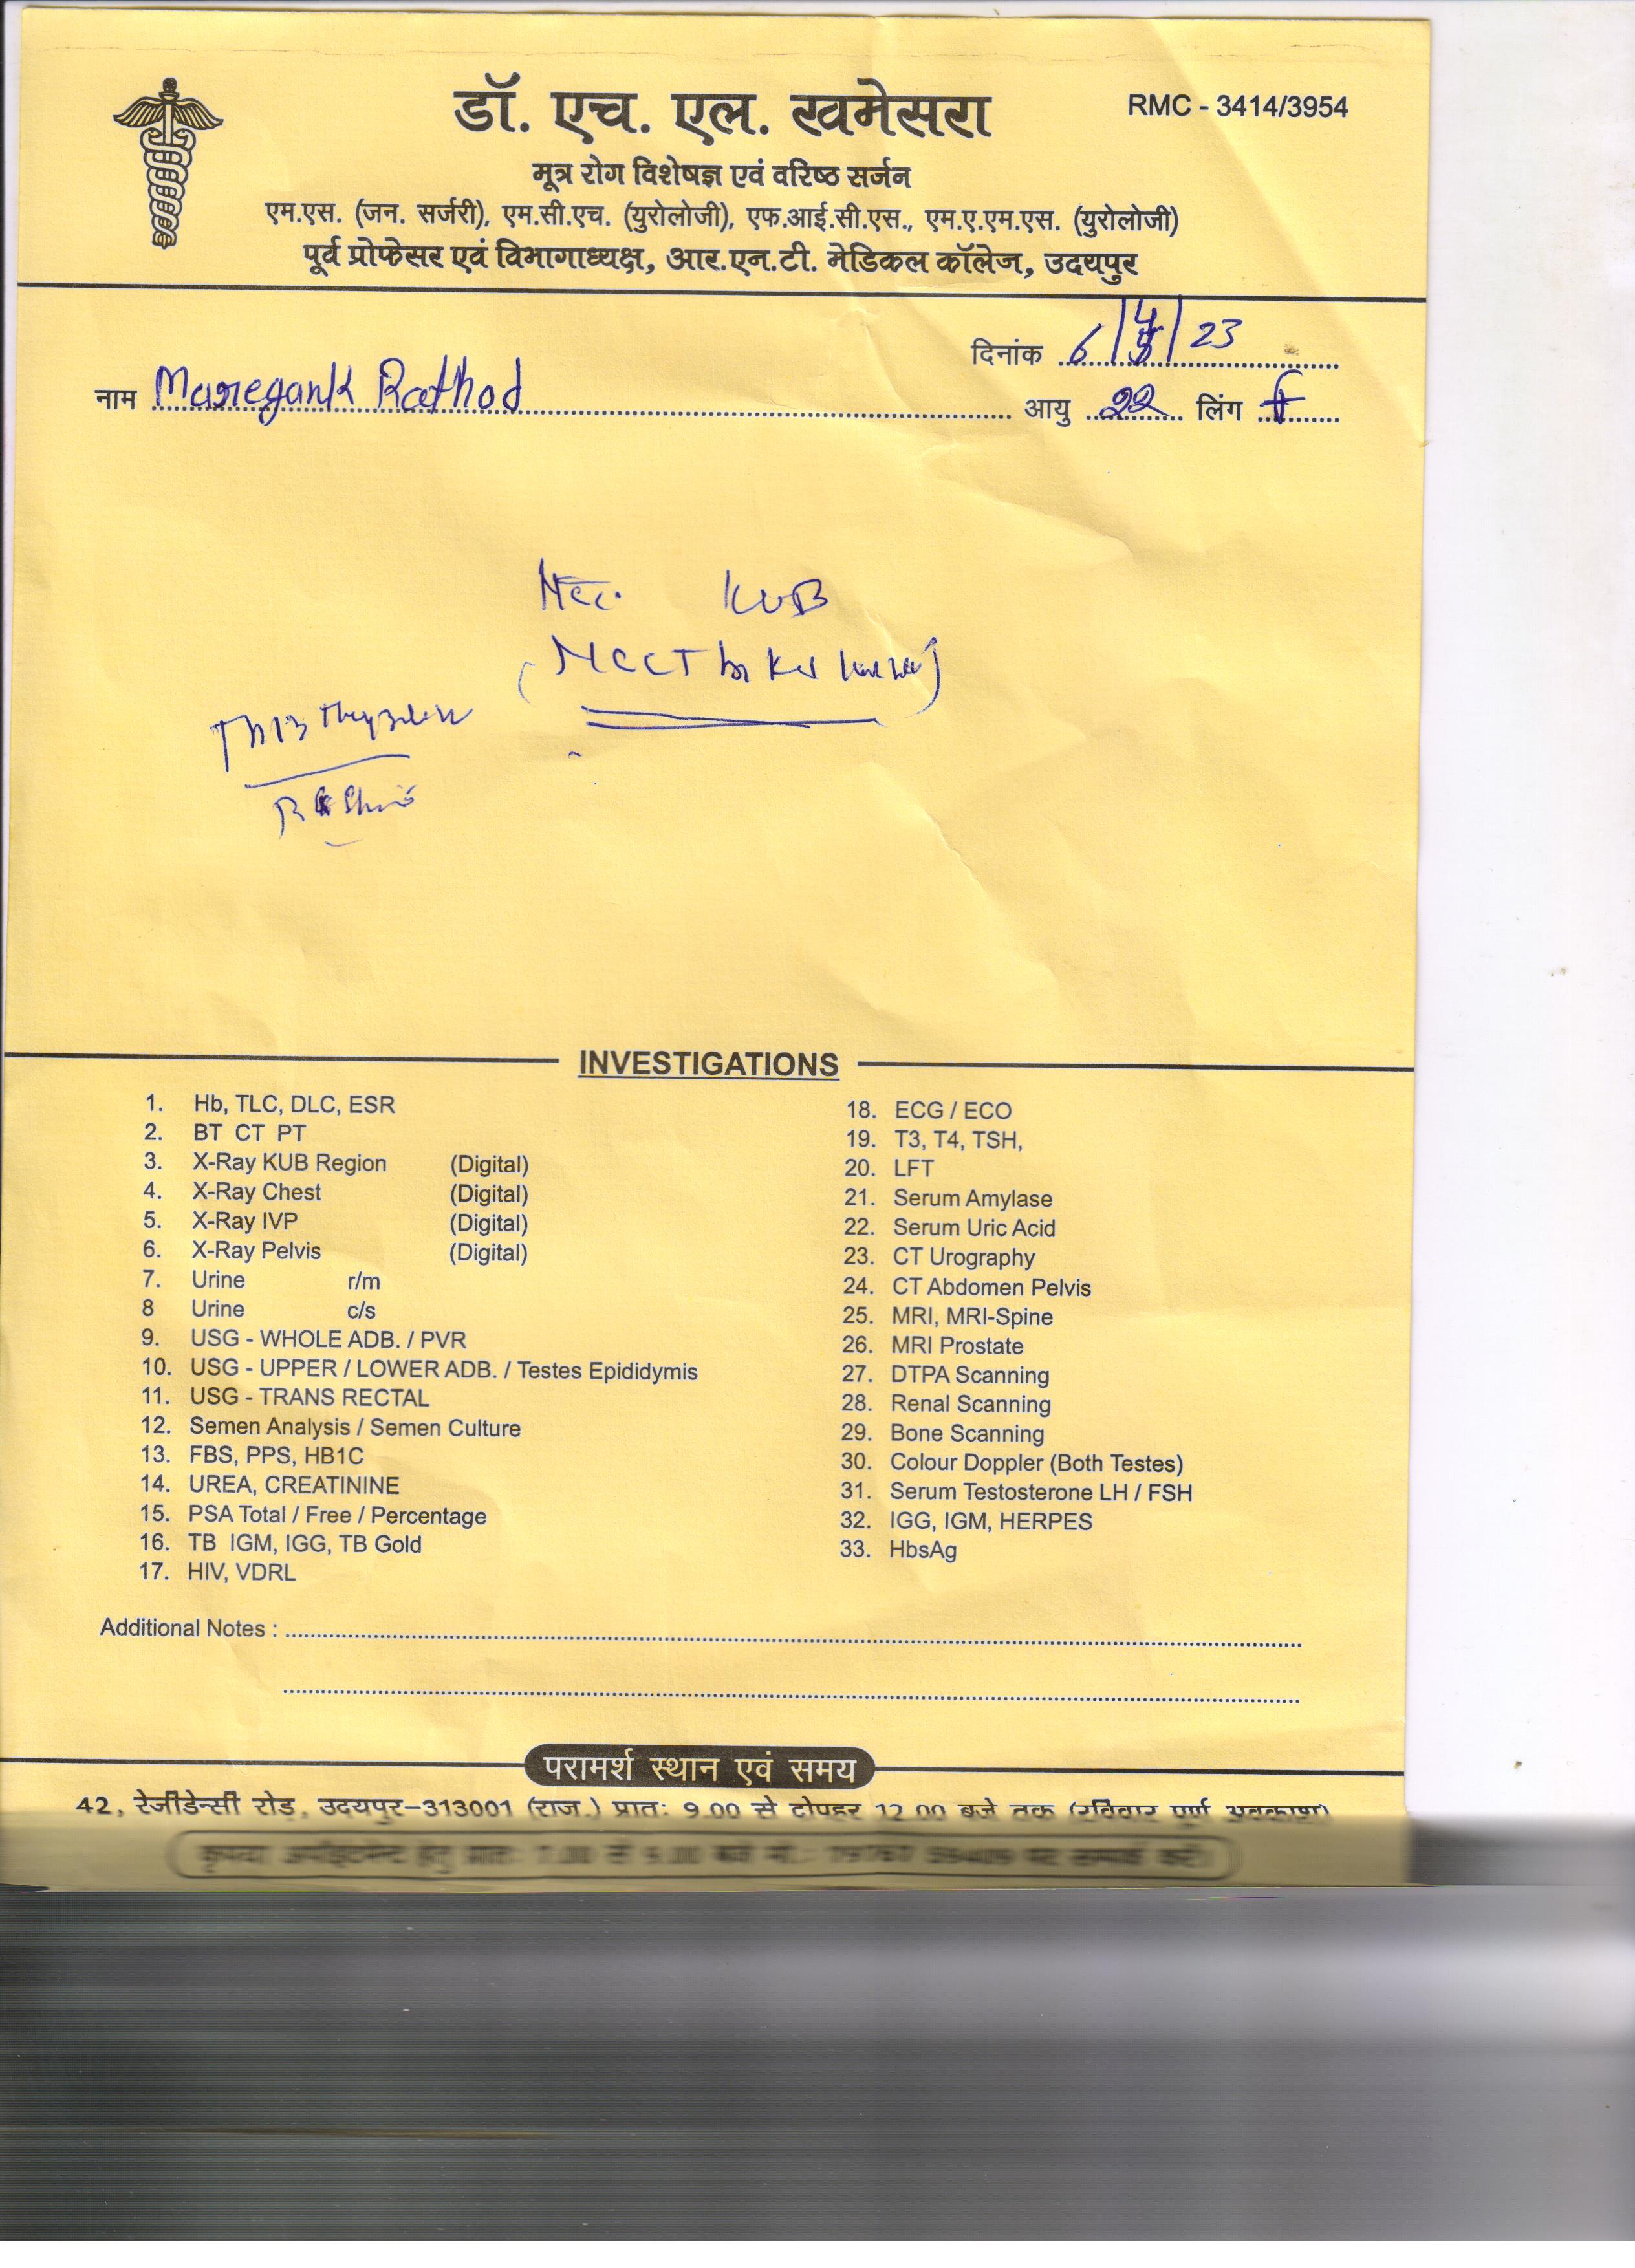 डॉ. एच. एल. खमेसरा
RMC - 3414/3954
मूत्र रोग विशेषज्ञ एवं वरिष्ठ सर्जन
एम.एस. (जन. सर्जरी), एम.सी.एच. (युरोलोजी), एफ.आई.सी.एस., एम.ए.एम.एस. (युरोलोजी)
पूर्व प्रोफेसर एवं विभागाध्यक्ष, आर.एन.टी. मेडिकल कॉलेज, उदयपुर
दिनांक 6/4/23
नाम Maregank Rathod आयु 22 लिंग f
KUB
NCCT
INVESTIGATIONS
1. Hb, TLC, DLC, ESR
2. BT CT PT
3. X-Ray KUB Region (Digital)
4. X-Ray Chest (Digital)
5. X-Ray IVP (Digital)
6. X-Ray Pelvis (Digital)
7. Urine r/m
8 Urine c/s
9. USG - WHOLE ADB. / PVR
10. USG - UPPER / LOWER ADB. / Testes Epididymis
11. USG - TRANS RECTAL
12. Semen Analysis / Semen Culture
13. FBS, PPS, HB1C
14. UREA, CREATININE
15. PSA Total / Free / Percentage
16. TB IGM, IGG, TB Gold
17. HIV, VDRL
18. ECG / ECO
19. T3, T4, TSH,
20. LFT
21. Serum Amylase
22. Serum Uric Acid
23. CT Urography
24. CT Abdomen Pelvis
25. MRI, MRI-Spine
26. MRI Prostate
27. DTPA Scanning
28. Renal Scanning
29. Bone Scanning
30. Colour Doppler (Both Testes)
31. Serum Testosterone LH / FSH
32. IGG, IGM, HERPES
33. HbsAg
Additional Notes :
परामर्श स्थान एवं समय
42, रेजीडेन्सी रोड़, उदयपुर-313001 (राज.) प्रातः 9.00 से दोपहर 12.00 बजे तक (रविवार पूर्ण अवकाश)